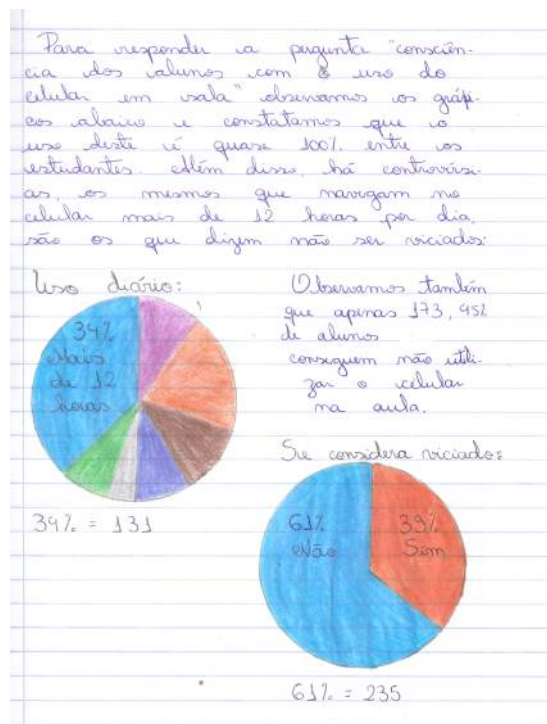 Para responder a pergunta "consciên-
cia dos alunos com o uso do
celular em sala" observamos os gráfi-
cos abaixo e constatamos que o
uso deste é quase 100% entre os
estudantes. Além disso, há controvérsi-
as, os mesmos que navegam no
celular mais de 12 horas por dia,
são os que dizem não ser viciados:
Uso diário:
34%
Mais
de 12
horas
34% = 131
Observamos também
que apenas 173,952
de alunos
conseguem não utili-
zar o celular
na aula.
Se considera viciado:
61%
Não
39%
Sim
61% = 235